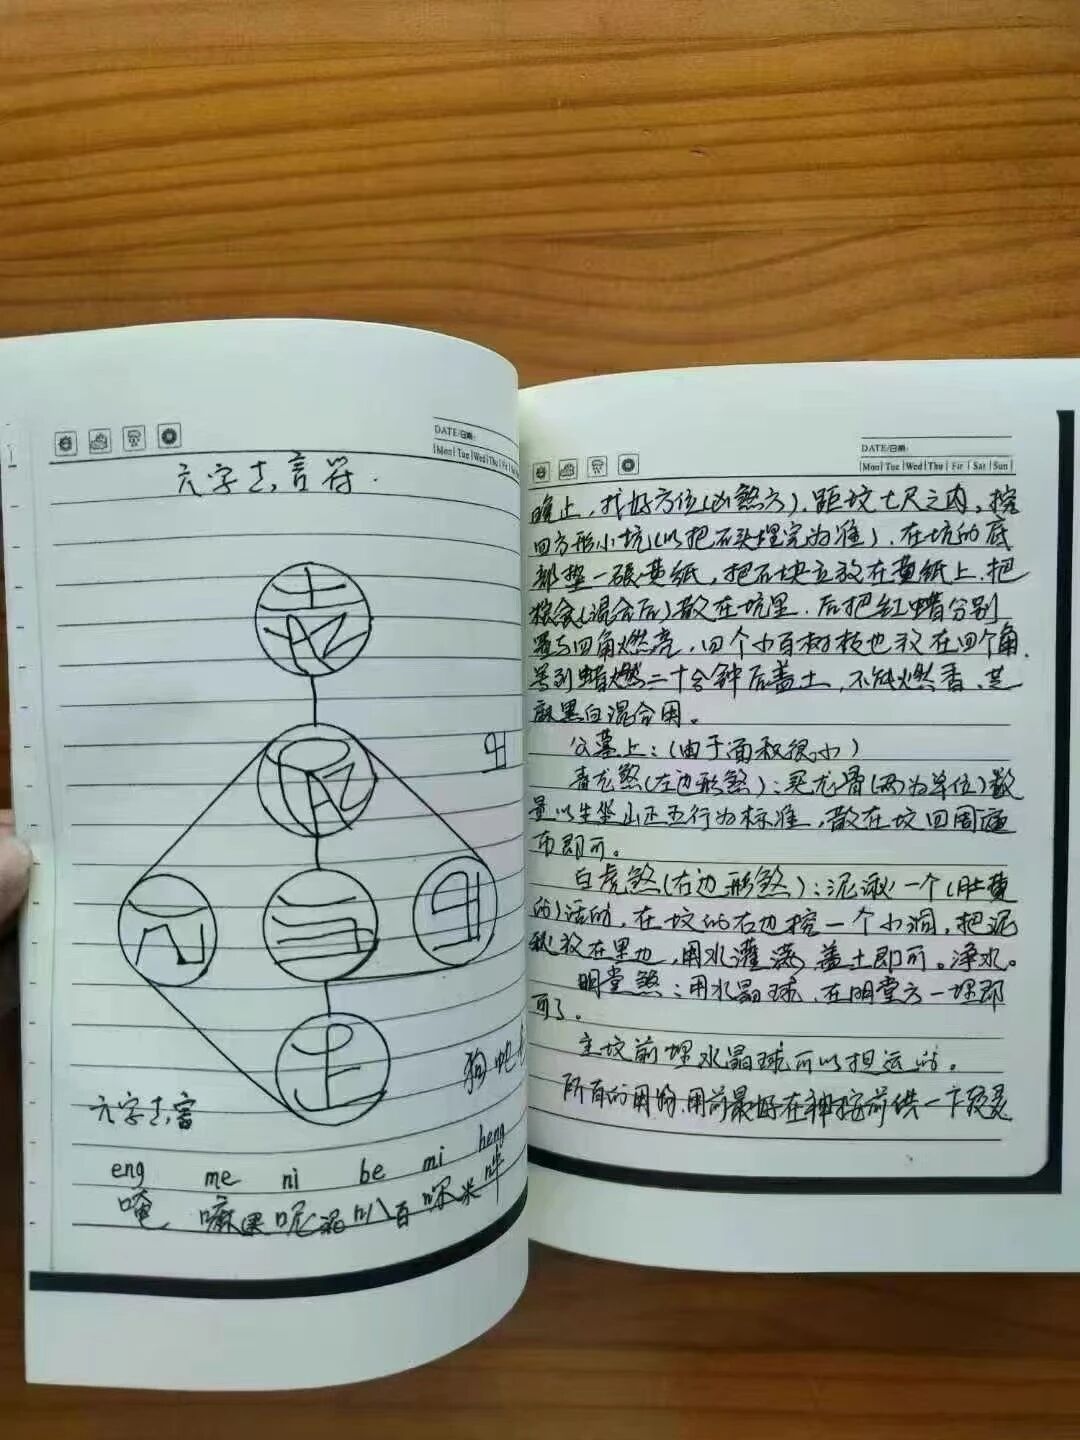 DATE/日期:
Mon Tue Wed Thu Fri
六字真言符.
狗
六字真言
eng me ni be mi heng
唵 嘛黑呢泥叭百咪米哞
DATE/日期:
Mon Tue Wed Thu Fir Sat Sun
晚上，找好方位(凶煞方)，距坟七尺之内，挖
四方形小坑(以把石头埋完为准)，在坑的底
部垫一张黄纸，把石块立放在黄纸上，把
粮食(混合后)散在坑里，后把红蜡分别
置与四角燃亮，四个小百树枝也放在四个角，
等到蜡燃二十分钟后盖土，不能燃香，芝
麻黑白混合用。
公墓上：(由于面积很小)
青龙煞(左边形煞)：买龙骨(两为单位)数
量以生坐山正五行为标准，散在坟四周
布即可。
白虎煞(右边形煞)：泥鳅一个(肚黄
的)活的，在坟的右边挖一个小洞，把泥
鳅放在里边，用水灌满，盖土即可。净水。
明堂煞：用水晶球，在明堂方一埋即
可了。
主坟前埋水晶球可以担运的。
所有的用物，用前最好在神按前供一下较灵